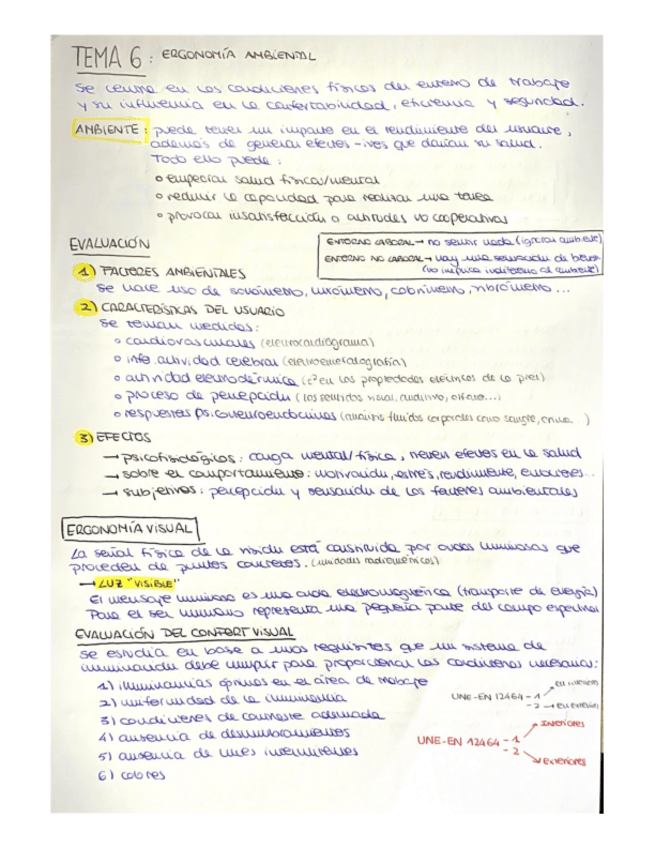 TEMA 6: ERGONOMÍA AMBIENTAL
Se centra en las condiciones físicas del entorno de trabajo
y su influencia en la confortabilidad, eficiencia y seguridad.
AMBIENTE: puede tener un impacto en el rendimiento del usuario,
además de generar efectos -ivos que dañan su salud.
Todo ello puede:
o empeorar salud física/mental
o reducir la capacidad para realizar una tarea
o provocar insatisfacción o actitudes no cooperativas
EVALUACIÓN
ENTORNO LABORAL → no sentir nada (ignorar ambiente)
ENTORNO NO LABORAL → hay una sensación de
(no impulsa indiferente al ambiente)
1) FACTORES AMBIENTALES
Se hace uso de sonómetro, luxómetro, vibrómetro...
2) CARACTERÍSTICAS DEL USUARIO
Se toman medidas:
o cardiovasculares (electrocardiograma)
o info. actividad cerebral (electroencefalografía)
o actividad electrodérmica (en las propiedades eléctricas de la piel)
o proceso de percepción (los sentidos visual, auditivo, olfato...)
o respuestas psiconeuroendocrinas (análisis fluidos corporales como sangre, orina...)
3) EFECTOS
→ psicofisiológicos: carga mental/física, tienen efectos en la salud
→ sobre el comportamiento: motivación, estrés, rendimiento, emociones...
→ subjetivos: percepción y sensación de los factores ambientales
ERGONOMÍA VISUAL
La señal física de la visión está constituida por ondas luminosas que
proceden de puntos concretos. (unidades radiométricas)
→ LUZ "VISIBLE"
El mensaje luminoso es una onda electromagnética (transporte de energía)
Para el ser humano representa una pequeña parte del campo espectral
EVALUACIÓN DEL CONFORT VISUAL
Se estudia en base a unos requisitos que un sistema de
iluminación debe cumplir para proporcionar las condiciones necesarias:
1) iluminancias óptimas en el área de trabajo
2) uniformidad de la iluminancia
3) condiciones de contraste adecuada
4) ausencia de deslumbramientos
5) ausencia de luces intermitentes
6) colores
UNE-EN 12464 - 1 → en interiores
- 2 → en exteriores
UNE-EN 12464 - 1 → Interiores
- 2 → Exteriores